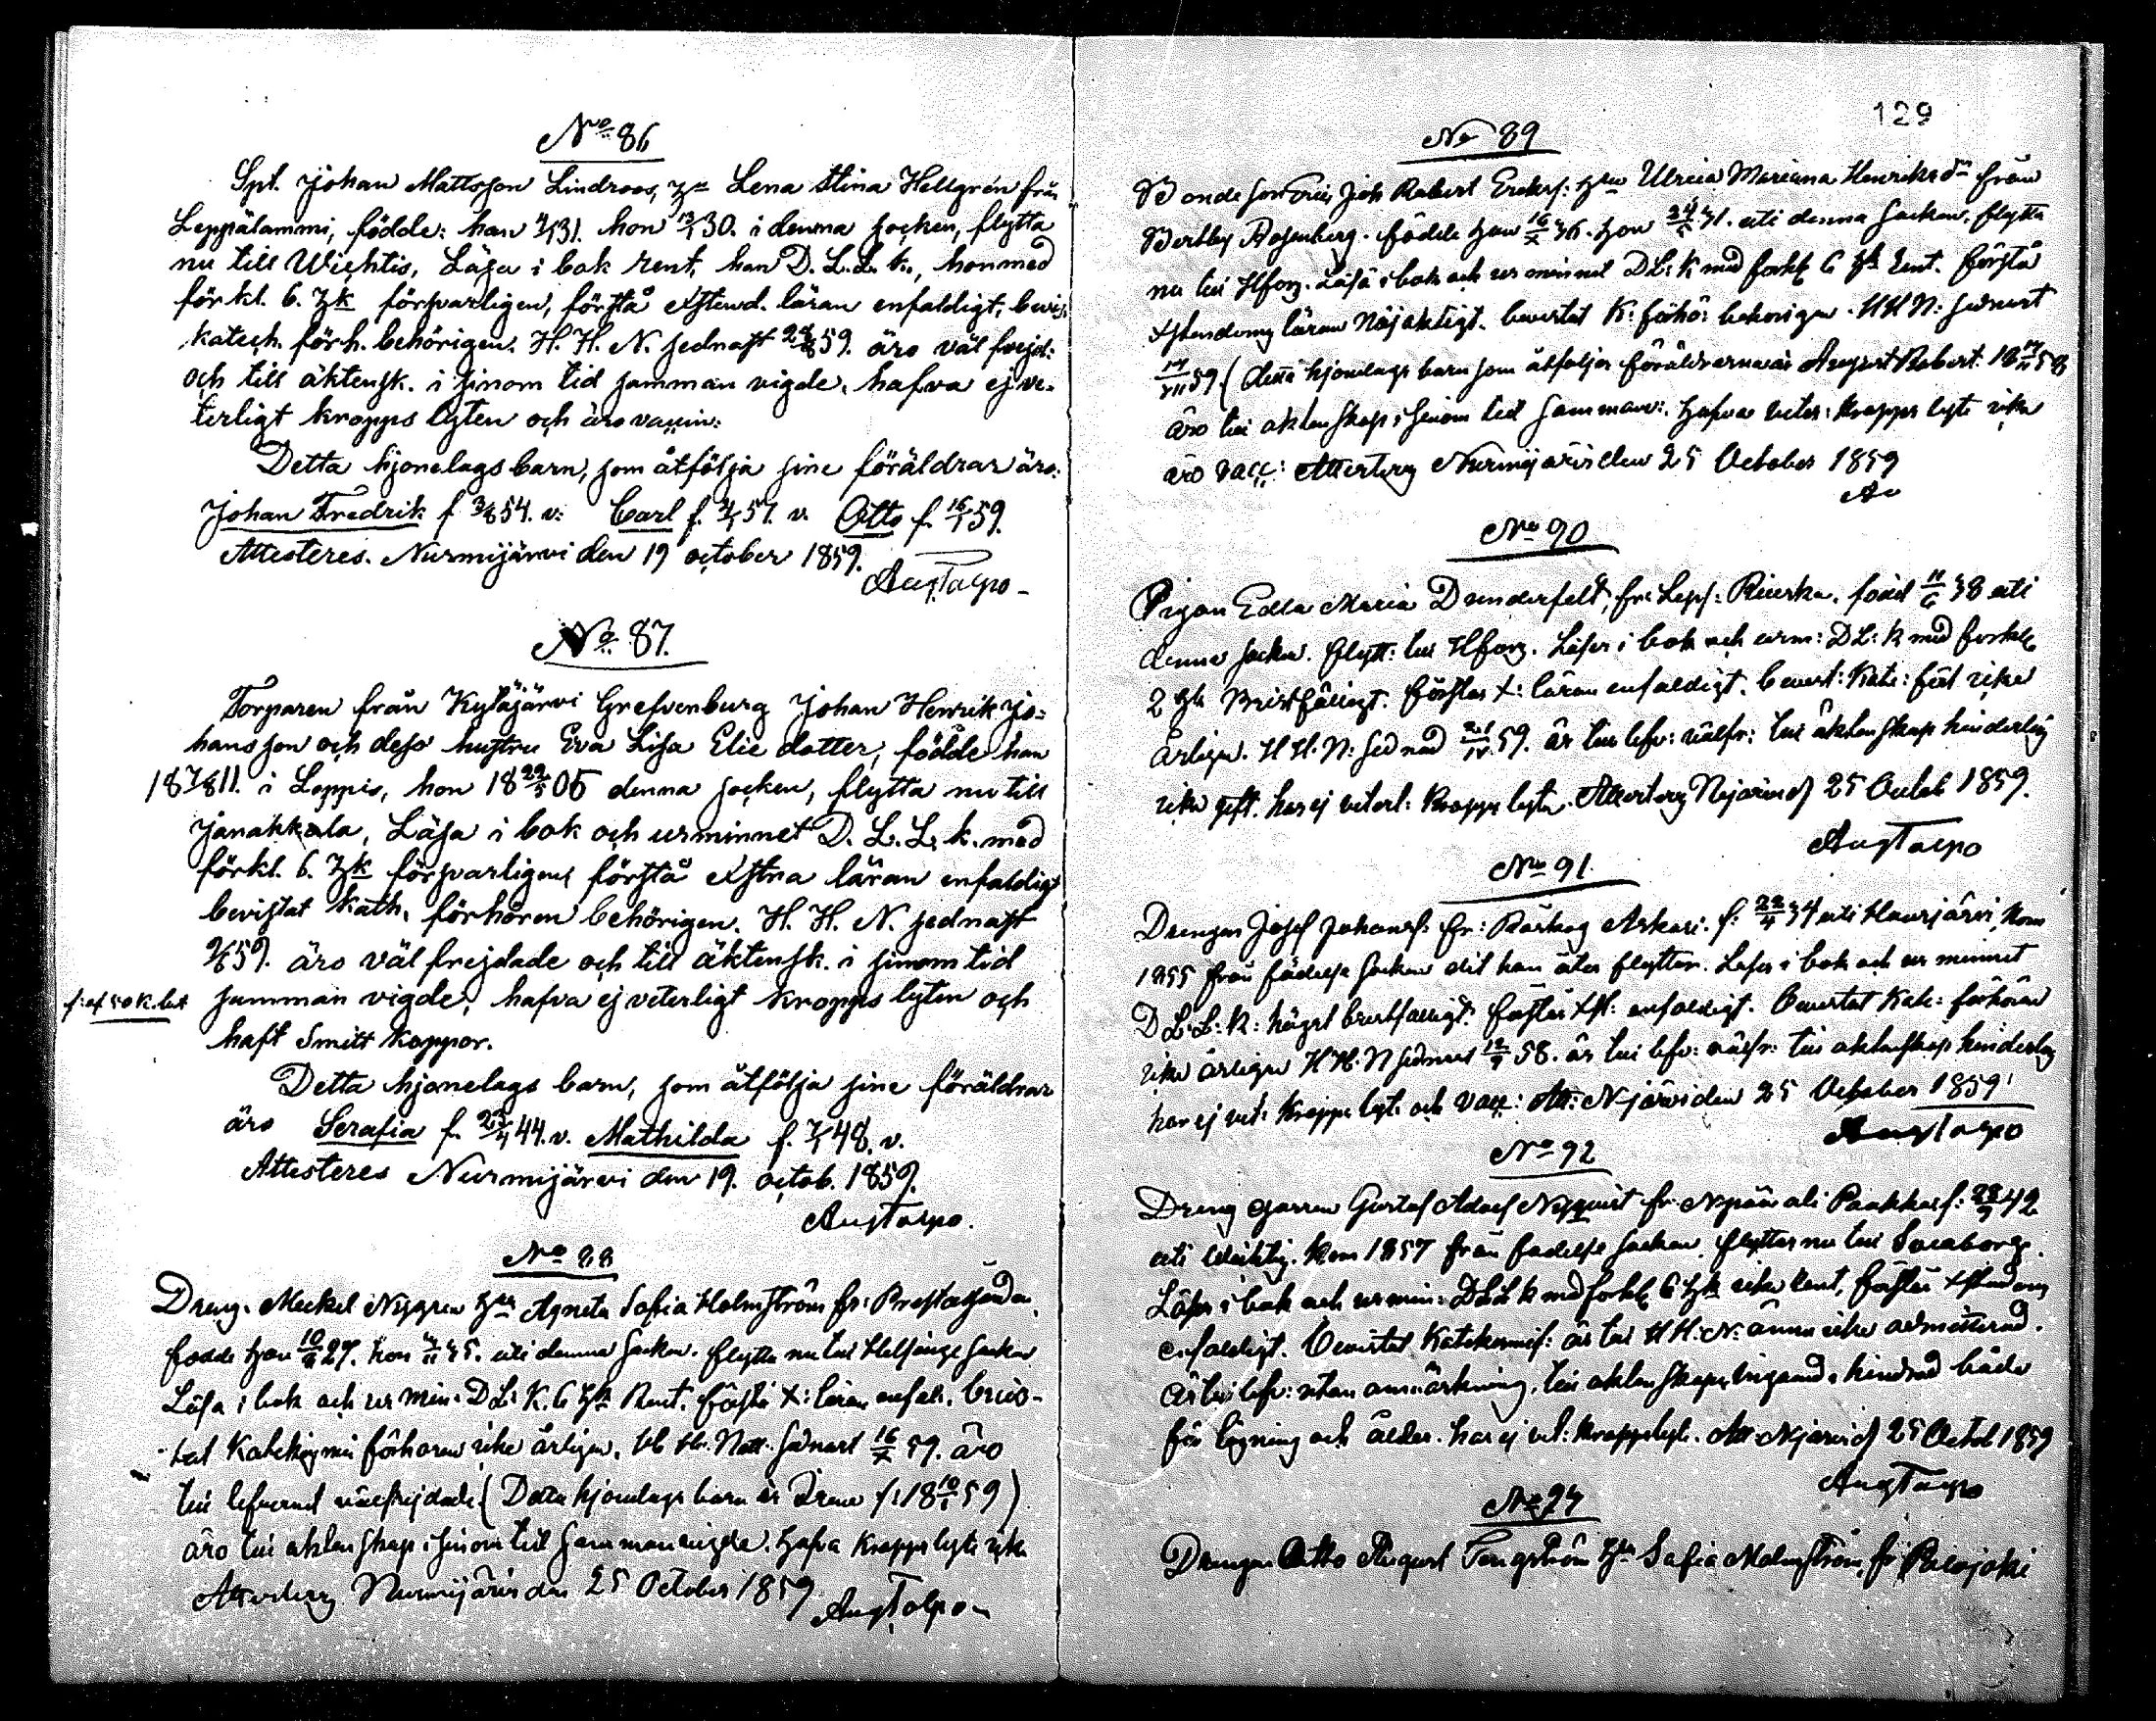 No 86
Spl. Johan Mattsson Lindroos, Hu Lena Stina Hellgrén från
Leppälammi, födde: han 31. hon 13/1 30. i denna socken, flytta
nu till Wichtis, Läsa i bok rent, han D. L. L. k., hon med
förkl. 6. Hk försvarligen, förstå Xstend. läran enfaldigt, bevis:
katech. förh. behörigen. H. H. N. sednast 59. äro väl frejd:
och till äktensk. i sinom tid samman vigde, hafva ej ve-
terligt kropps lyten och äro vaccin:
Detta hjonelags barn, som åtfölja sine föräldrar äro:
Johan Fredrik f. 3/8 54. v: Carl f. 57. v. Otto f. 16/1 59.
Attesteres. Nurmijärvi den 19 october 1859.
Aug Talpo
No 87.
Torparen från Kytäjärvi Grefvenburg Johan Henrik Jo-
hansson och dess hustru Eva Lisa Elie dotter, födde han
18 7/8 11. i Loppis, hon 18 22/5 05 denna socken, flytta nu till
Janakkala, Läsa i bok och urminnet D. L. L. k. med
förkl. 6. Hk försvarligent förstå Xstna läran enfaldigt
bevistat kath. förhören behörigen. H. H. N. sednast
59. äro väl frejdade och till äktensk. i sinom tid
samman vigde, hafva ej veterligt kropps lyten och
haft Smitt koppor.
Detta hjonelags barn, som åtfölja sine föräldrar
äro Serafia f. 44. v. Mathilda f. 48. v.
Attesteres Nurmijärvi den 19. octob. 1859.
Aug Talpo.
No 88
Dreng. Meckel Nygren Hu Agneta Sofia Holmström fr:
födde han 10/9 27. hon 35. uti denna socken. flytta nu till Helsinge socken
Läsa i bok och ur min: D L: K. 6 Hk Rent. förstå X: läran enfal. bevis-
tat Katekismi förhören icke årligen. H. H. Natt: sednast 16/X 59. äro
till lefvernet välfrejdade (Detta hjonelags barn är f: 18 10/ 59)
äro till aktenskap i sinom tid sammanvigde. hafva kropps lyte icke
Attesteres Nurmijärvi den 25 October 1859
Aug Talpo
129
No 89
Bonde son Joh Robert Ericss: Hu Ulrica Mariana Henriksdr från
Bertby Rosenberg. födde han 16/X 36. hon 24/ 31. uti denna socken. flytta
nu till Hfors. Läsa i bok och ur minnet D L: K med forkl 6 Hk Rent. förstå
Xstendoms läran Nöjaktigt. bevistat K: förhö: behörigen. H H N: sednast
17/VII 59. (detta hjonelags barn som åtföljer föräldrarna är August Robert. 18 17/11 58
äro till aktenskap i sinom tid samman: hafva veter: kropps lyte icke
äro vacc: Attesteres Nurmijärvi den 25 October 1859
No 90
Pigan Edla Maria Dunderfelt, fr: Leps: född 11/6 38 uti
denna socken. flytt: till Hfors. Läser i bok och urm: D L: K med forkl
2 Hk Bristfälligt. förstår X: läran enfaldigt. bevist: Kate: för icke
årligen. H H. N: sednad 59. är till lefv: välfr: till äktenskap hinderlös
icke gift. har ej veterl: kropps lyte. Attesteres Njärvi d 25 Octob 1859.
Aug Talpo
No 91.
Drengen Josef Johanss: fr: Röskog Askari. f: 22/4 34 uti Hausjärvi, kom
1855 från födelse socken dit han åter flyttar. Läser i bok och ur minnet
D L. L: K: något bristfälligt. förstår Xst: enfaldigt. Bevistat Kate: förhören
icke årligen H H. N sednast 12/9 58. är till lefv: välfr: till aktenskap hinderlös
har ej vet: kropps lyte och vacc: Att: Njärvi den 25 October 1859.
Aug Talpo
No 92
Dreng gossen Gustaf Adolf Nyqvist fr. Paakkas f: 42
uti Wichtis. Kom 1857 från födelse socken. flyttar nu till Sveaborg.
Läser i bok och ur min: D L L k med forkl 6 Hk icke rent, förstår Xstendom
enfaldigt. Bevistat Katekismif: är till H H: N: ännu icke admitterad.
är till lefv: utan anmärkning, till aktenskaps ingående hindrad både
för lysning och ålder. har ej vet: kroppslyte. Att Njärvi d 25 Octob 1859
Aug Talpo
Drengen Otto August Tengström Hu Sofia Malmström, fr Palojoki